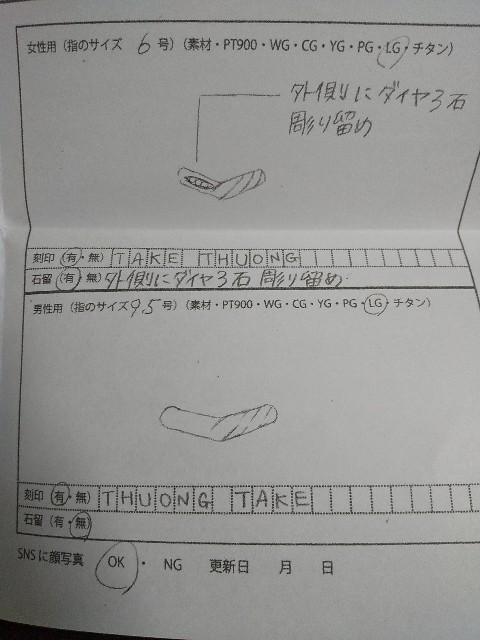 女性用（指のサイズ 6 号）（素材・PT900・WG・CG・YG・PG・LG・チタン）
外側にダイヤ3石
彫り留め
刻印（有・無） TAKE THUONG
石留（有・無） 外側にダイヤ3石 彫り留め
男性用（指のサイズ 9.5 号）（素材・PT900・WG・CG・YG・PG・LG・チタン）
刻印（有・無） THUONG TAKE
石留（有・無）
SNSに顔写真 OK ・ NG 更新日 月 日